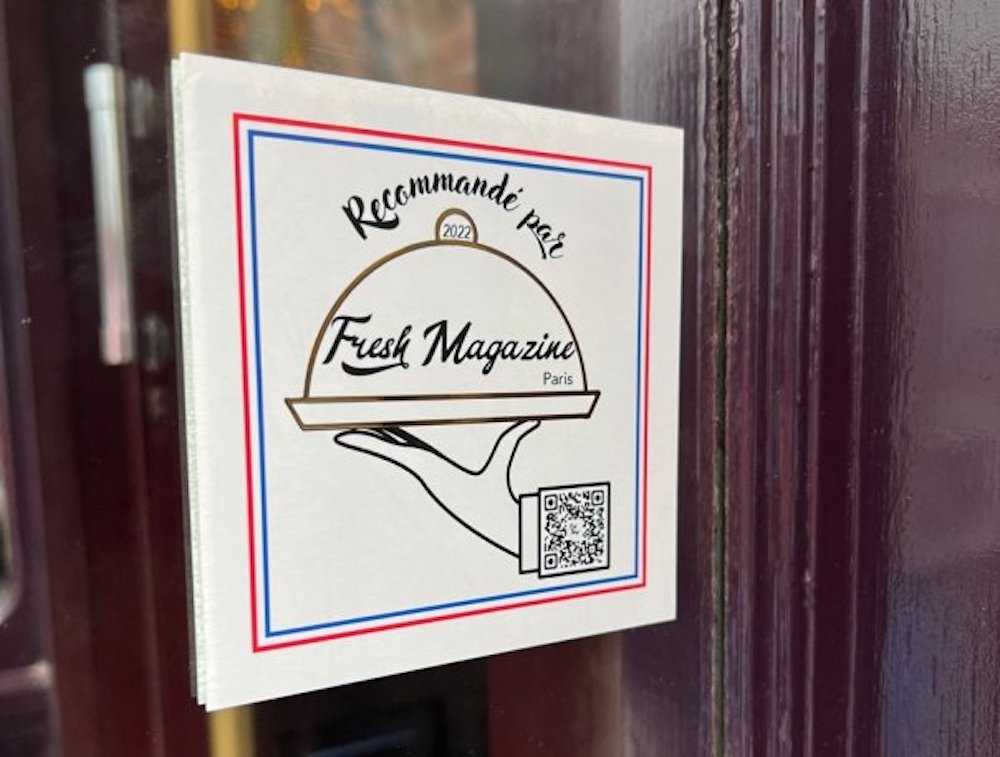 Recommandé par
2022
Fresh Magazine
Paris